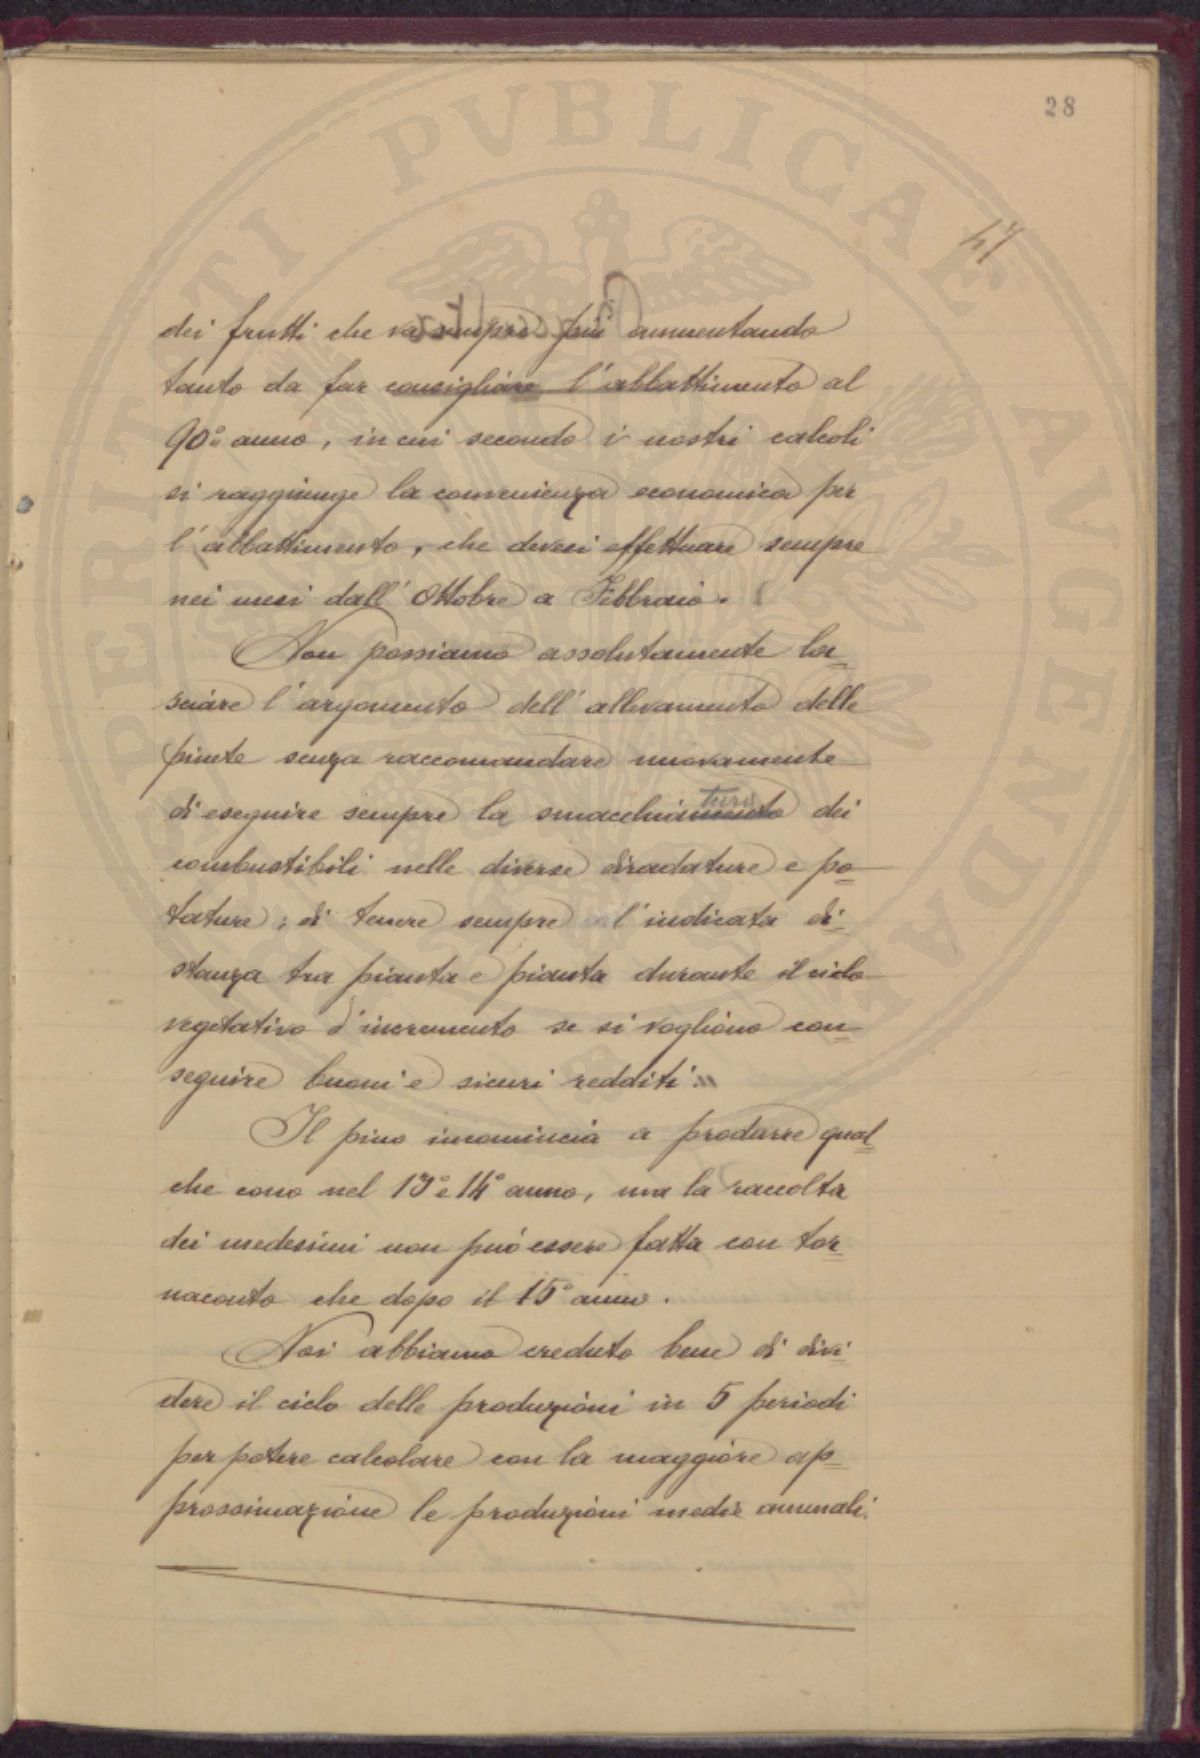 28
47
dei frutti che va sempre più aumentando
tanto da far consigliare l'abbattimento al
90º anno, in cui secondo i nostri calcoli
si raggiunge la convenienza economica per
l'abbattimento, che devesi effettuare sempre
nei mesi dall'Ottobre a Febbraio.
Non possiamo assolutamente la=
sciare l'argomento dell'allevamento delle
piante senza raccomandare nuovamente
di eseguire sempre la smacchiatura dei
combustibili nelle diverse diradature e po=
tature; di tenere sempre l'indicata di=
stanza tra pianta e pianta durante il ciclo
vegetativo d'incremento se si vogliono con=
seguire buoni e sicuri redditi.
Il pino incomincia a produrre qual=
che cono nel 13º e 14º anno, ma la raccolta
dei medesimi non può essere fatta con tor=
naconto che dopo il 15º anno.
Noi abbiamo creduto bene di divi=
dere il ciclo delle produzioni in 5 periodi
per potere calcolare con la maggiore ap=
prossimazione le produzioni medie annuali.
PERITATI PVBLICAE AVGENDAE